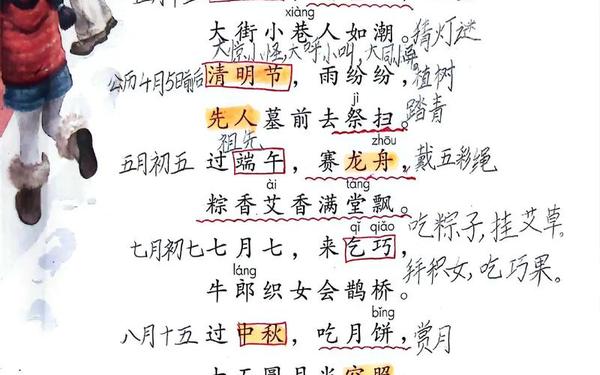 xiàng
大街小巷人如潮。猜灯谜
大惊小怪,大呼小叫,大同小异。
公历4月5日前后 清明节,雨纷纷,植树
jì
先人墓前去祭扫。踏青
祖先 zhōu
五月初五 过端午,赛龙舟,戴五彩绳
ài táng
粽香艾香满堂飘。吃粽子,挂艾草。
qǐ qiǎo
七月初七 七月七,来乞巧,拜织女,吃巧果。
láng
牛郎织女会鹊桥。
bǐng
八月十五 过中秋,吃月饼,赏月
十五圆月当空照